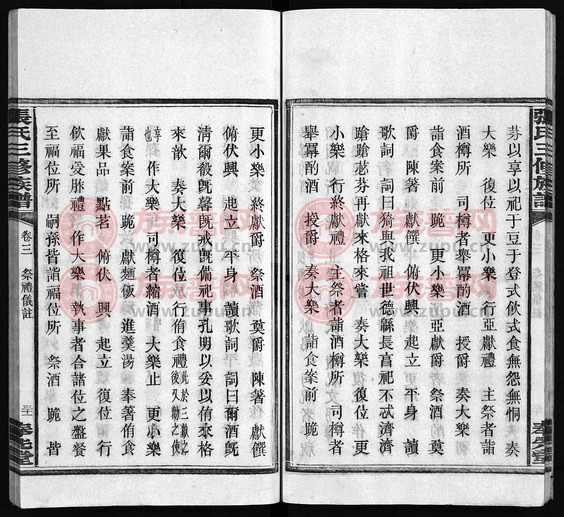 張氏三修族譜
芬以享以祀于豆于登式飲式食無怨無恫 奏
大樂 復位 更小樂 行亞獻禮 主祭者詣
酒樽所 司樽者舉羃酌酒 授爵 奏大樂
詣食案前 跪 更小樂 亞獻爵 祭酒 奠
爵 陳著 獻饌 俯伏興 起立 平身 讀
歌詞 詞曰猗與我祖世德縣長宦祀不忒濟濟
蹌蹌苾芬再獻來格來嘗 奏大樂 復位 更
小樂 行終獻禮 主祭者詣酒樽所 司樽者
舉羃酌酒 授爵 奏大樂 詣食案前 跪
更小樂 終獻爵 祭酒 奠爵 陳著 獻饌
俯伏興 起立 平身 讀歌詞 詞曰爾酒旣
清爾殽旣馨旣戒旣備祀事孔明以妥以侑來格
來歆 奏大樂 復位 行侑食禮
作大樂 司樽者縮酒 大樂止 更小樂
詣食案前 跪 獻麵飯 進羮湯 奉箸侑食
獻果品 點茗 俯伏 興 起立 復位 行
飲福受胙禮 作大樂 執事者合諸位之盤餐
至福位所 嗣孫皆詣福位所 祭酒 跪 皆
張氏三修族譜
卷三 祭禮儀註